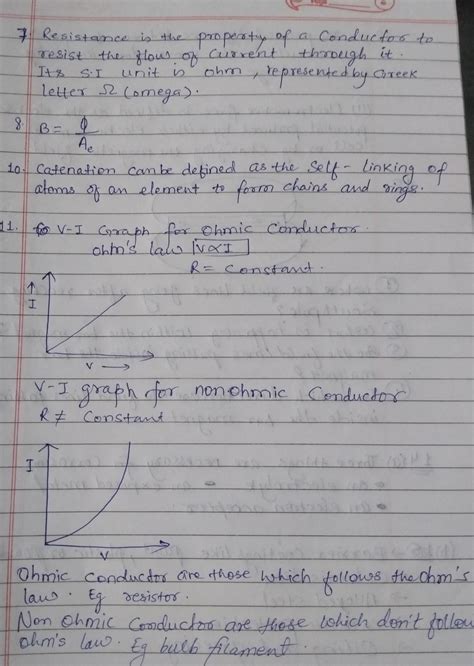 7. Resistance is the property of a Conductor to
resist the flow of Current through it.
Its S.I unit is ohm, represented by Greek
letter Ω (omega).
8. B = ϕ / Ae
10. Catenation can be defined as the Self-linking of
atoms of an element to form chains and rings.
11. V-I Graph for Ohmic Conductor.
ohm's law V∝I
R = Constant.
↑
I
V →
V-I graph for nonohmic Conductor
R ≠ Constant
I
V
Ohmic Conductor are those which follows the Ohm's
law. Eg resistor.
Non Ohmic Conductor are those which don't follow
ohm's law. Eg bulb filament.